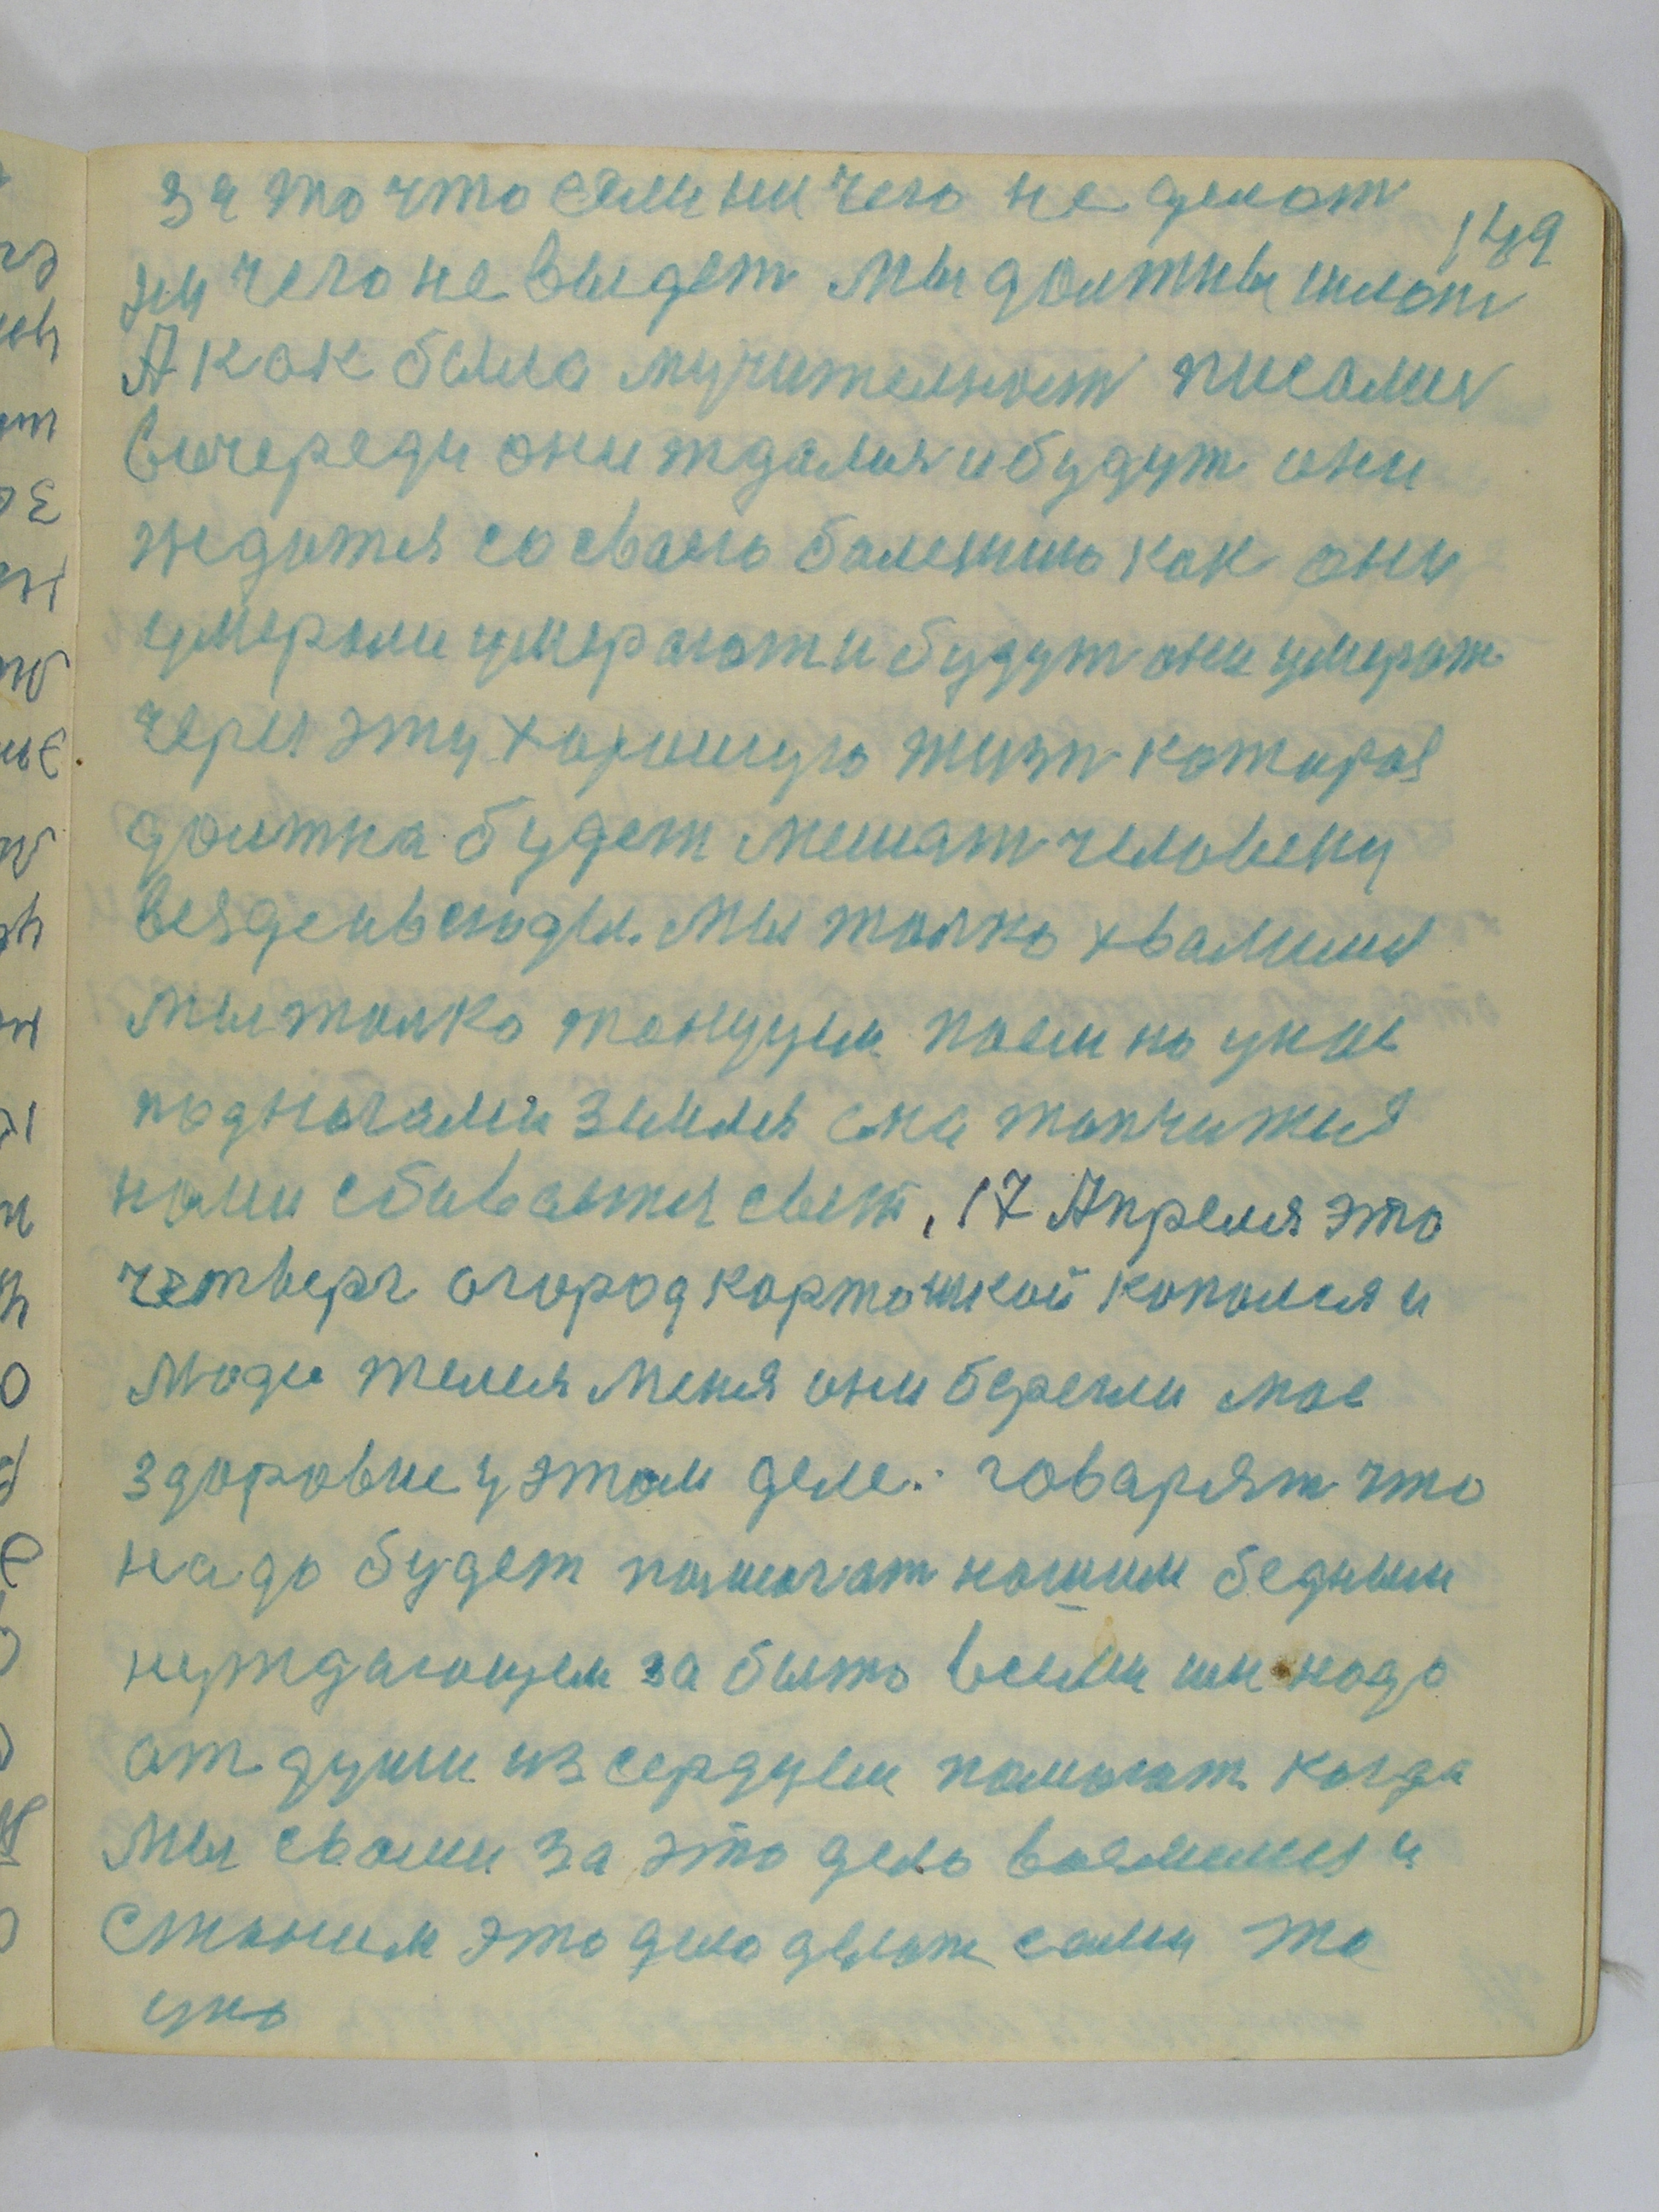 149
за то что если ни чего не делат
ни чего не выдет мы должны
А как была мучительност писалися
в очереди они ждалися и будут они
ждатся со своею болезнию как они
умерали умерают и будут они умерат
через эту хорошую жизн которая
должна будет мешат человеку
везде и всюды. Мы толко хвалимся
мы толко танцуем поем но у нас
под ногами земля она топчитися
нами сбивается свет, 17 Апреля это
четверг огород картошкой копался и
люди жилея меня они берегли мое
здоровие у этом деле. говарят что
надо будет помогат нашим бедным
нуждающем забыто всеми им надо
от души из сердцем помогат когда
мы с вами за это дело возмемся и
станем это дело делат сами то
уно